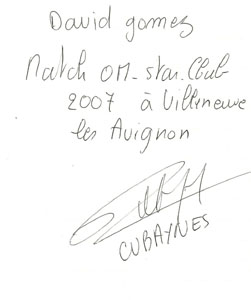 David gomez
Match OM-star. Club
2007 à Villeneuve
les Avignon
CUBAYNES